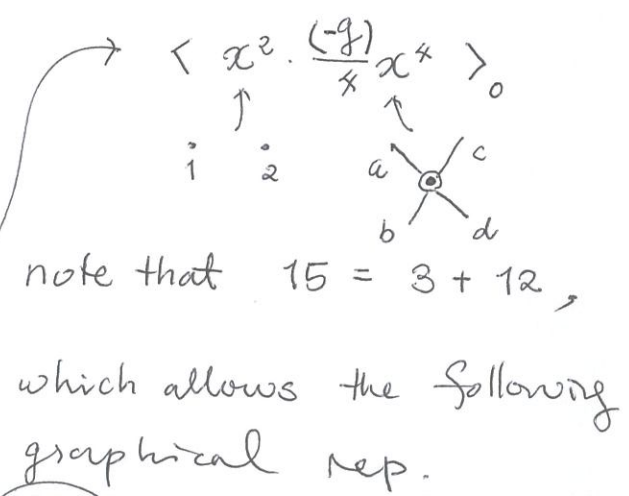 → < x² · (-g)/4 x⁴ >₀
↑ ↑
1 2 a c
b d
note that 15 = 3 + 12,
which allows the following
graphical rep.